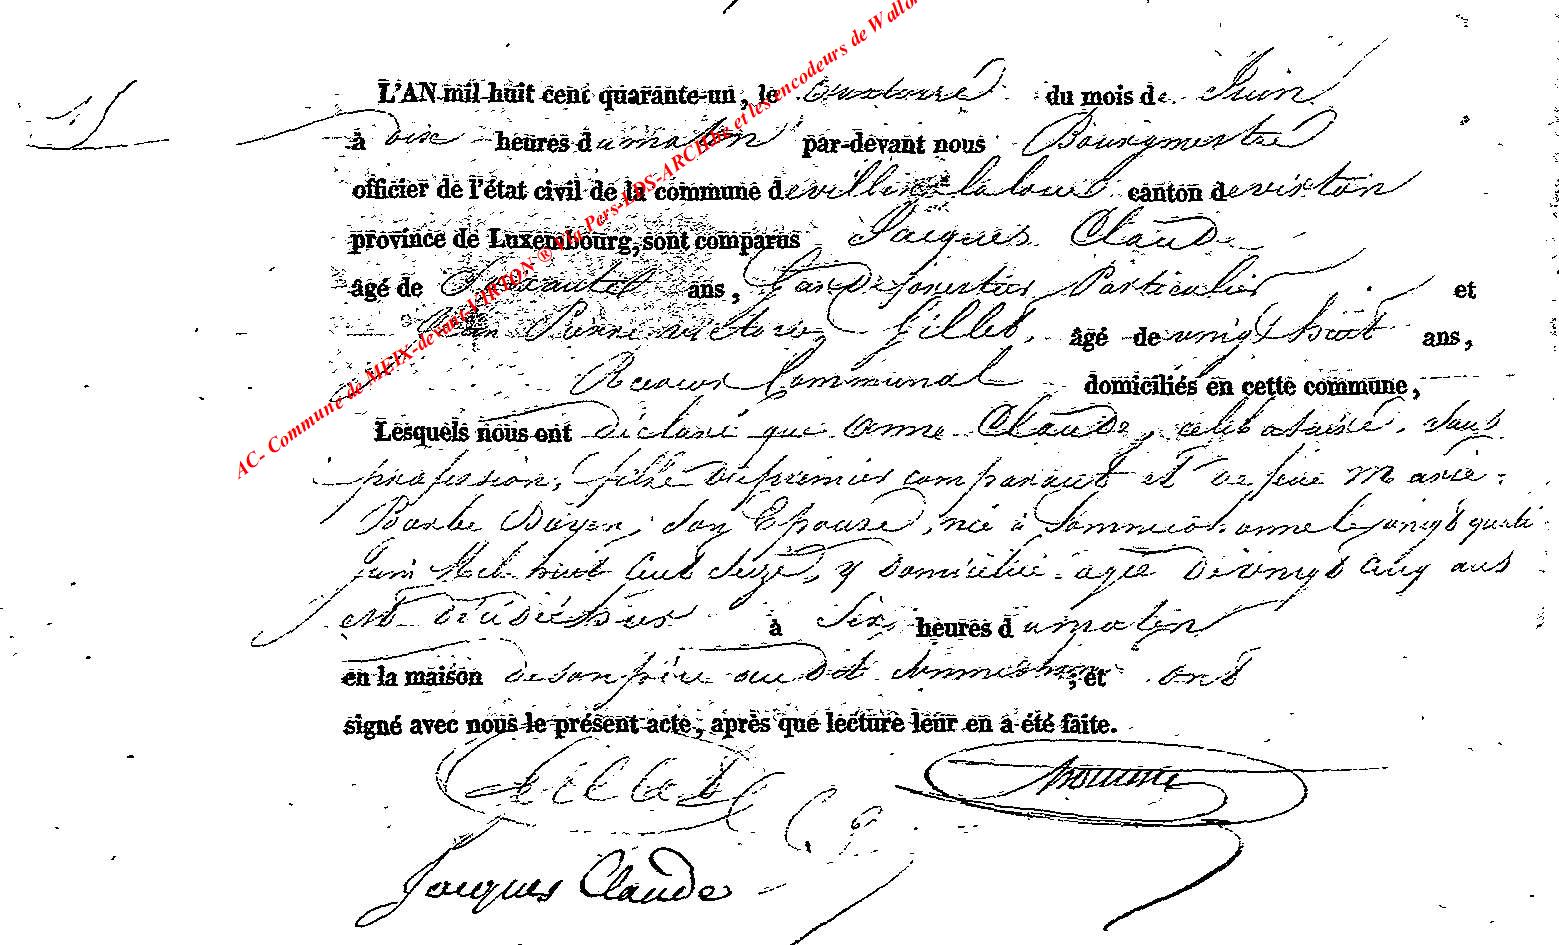 AC- Commune de MEIX-devant-VIRTON ® Via Pers-LDS-ARCHBe et les encodeurs de Wallo
L'AN mil huit cent quarante-un, le quatorze du mois de Juin
à dix heures du matin par-devant nous Bourgmestre
officier de l'état civil de la commune de villers la loue canton de virton
province de Luxembourg, sont comparus Jacques Claude
âgé de ans, Garde forestier Particulier et
Pierre victore Gillet, âgé de vingt huit ans,
Receveur Communal domiciliés en cette commune,
Lesquels nous ont déclaré que anne Claude, celibataire, sans
profession, fille du premier comparant et de feue Marie
Barbe Doyen, son Epouse, née à Sommethonne le vingt quatre
Juin Mil huit Cent Seize, y domiciliée agée de vingt cinq ans
est décédée hier à Six heures du matin
en la maison de son père au dit Sommethonne, et ont
signé avec nous le présent acte, après que lecture leur en a été faite.
Gillet
Jacques Claude